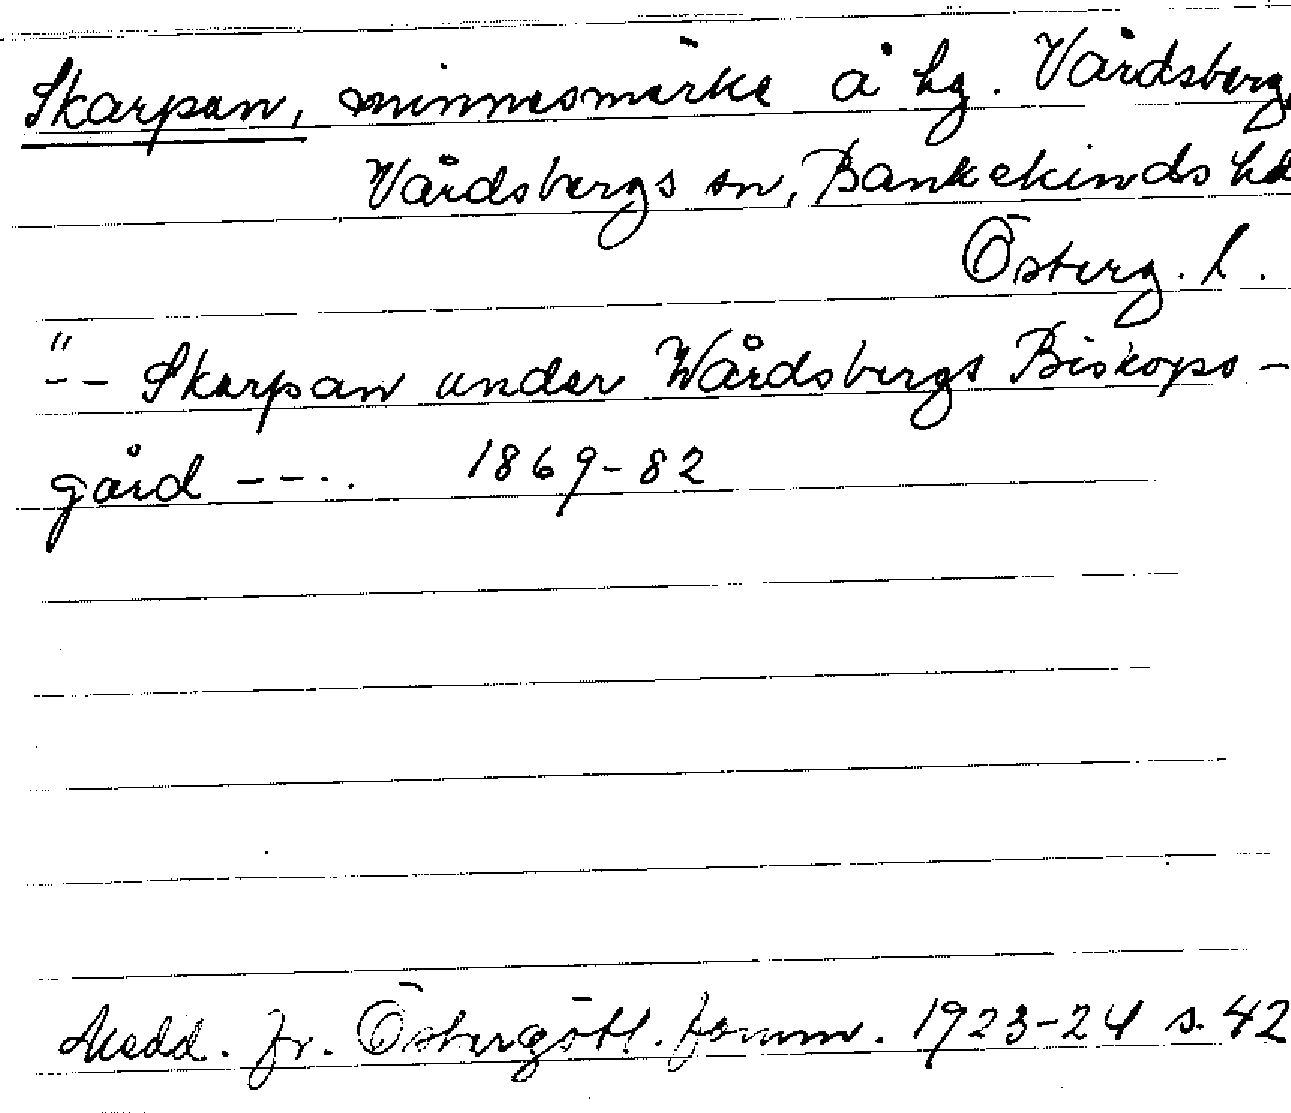 Skarpan, minnesmärke å hg. Vårdsberg,
Vårdsbergs sn, Bankekinds hd
Österg. l.
"-- Skarpan under Wårdsbergs Biskops-
gård --.. 1869-82
Medd. fr. Östergötl. fornm. 1923-24 s. 42